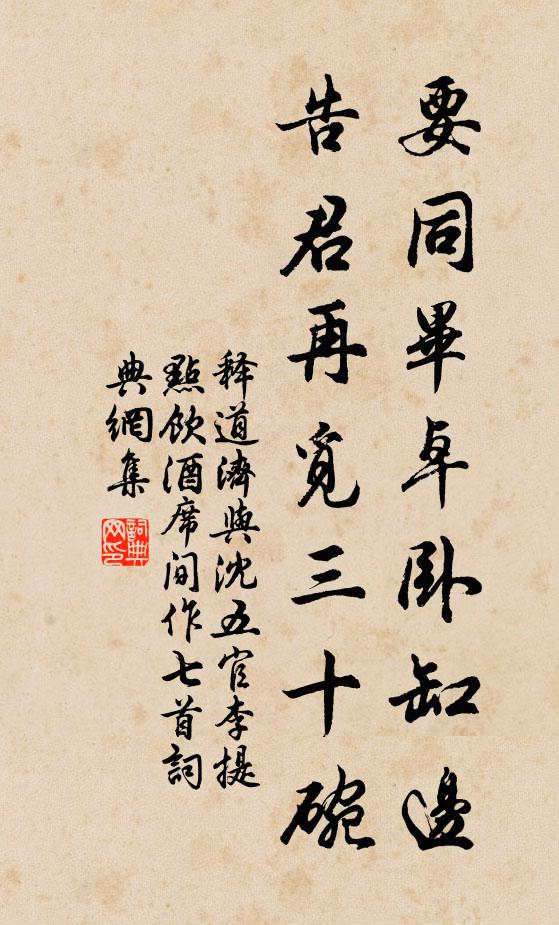 要同畢卓卧缸邊
告君再覓三十碗
释道濟與沈五官李提
點飲酒席间作七首詞
典網集
詞典网印